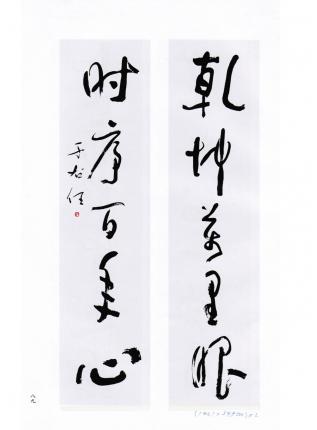 乾坤万里眼
时序百年心
于右任
八九